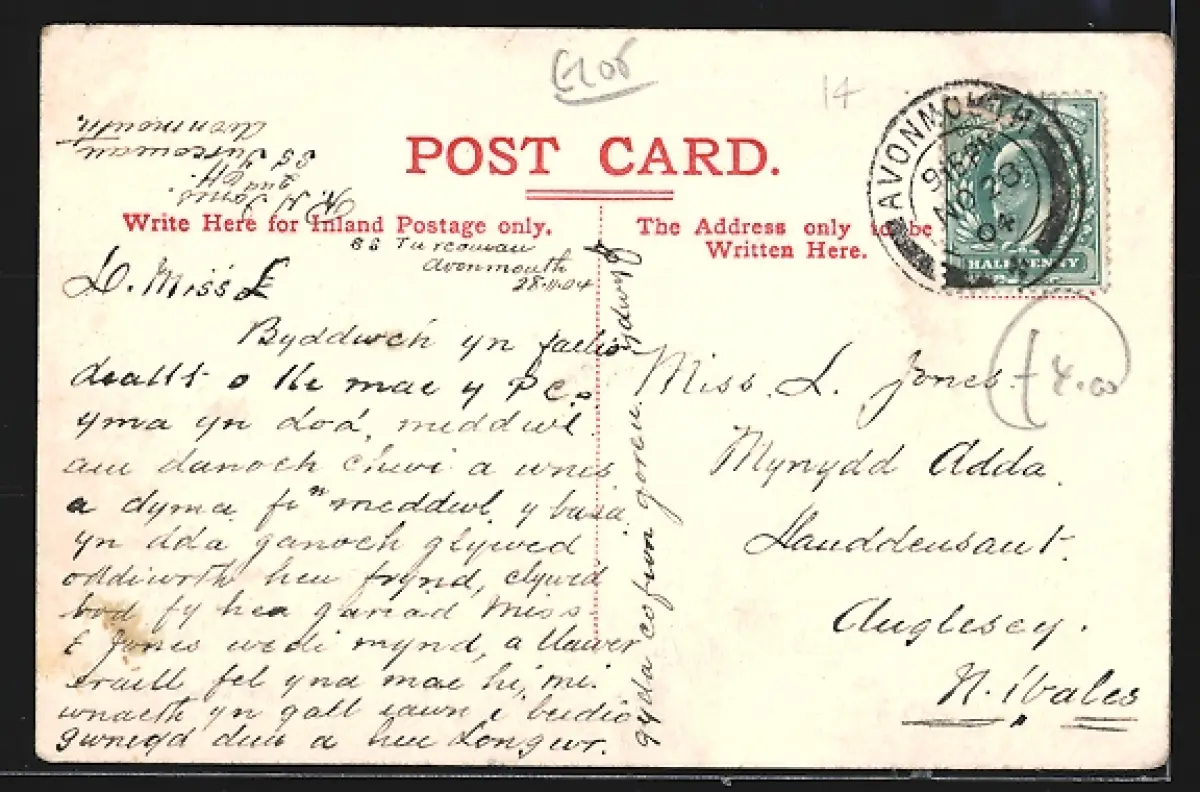 £1 06
14
POST CARD.
Write Here for Inland Postage only.
The Address only to be
Written Here.
AVONMOUTH
9 15 PM
NO 28
04
HALFPENNY
SS Turcoman
Avonmouth
28-11-04
D. Miss E
Byddwch yn
deallt o lle mae y P C.
yma yn dod, meddwl
am danoch chwi a wnes
a dyma fi'n meddwl y basa
yn dda ganoch glywed
oddiwrth hen frynd, clywed
bod fy hen gariad Miss
E Jones wedi mynd, a llawer
eraill fel yna mae hi, mi
wnaeth yn gall iawn i beidio
gwneyd dim a hen Longwr.
gyda cofion goreu ydwyf
R. N. Jones
2nd
SS Turcoman
Avonmouth.
Miss. L. Jones.
Mynydd Adda.
Llanddeusant.
Anglesey.
N. Wales
4.00